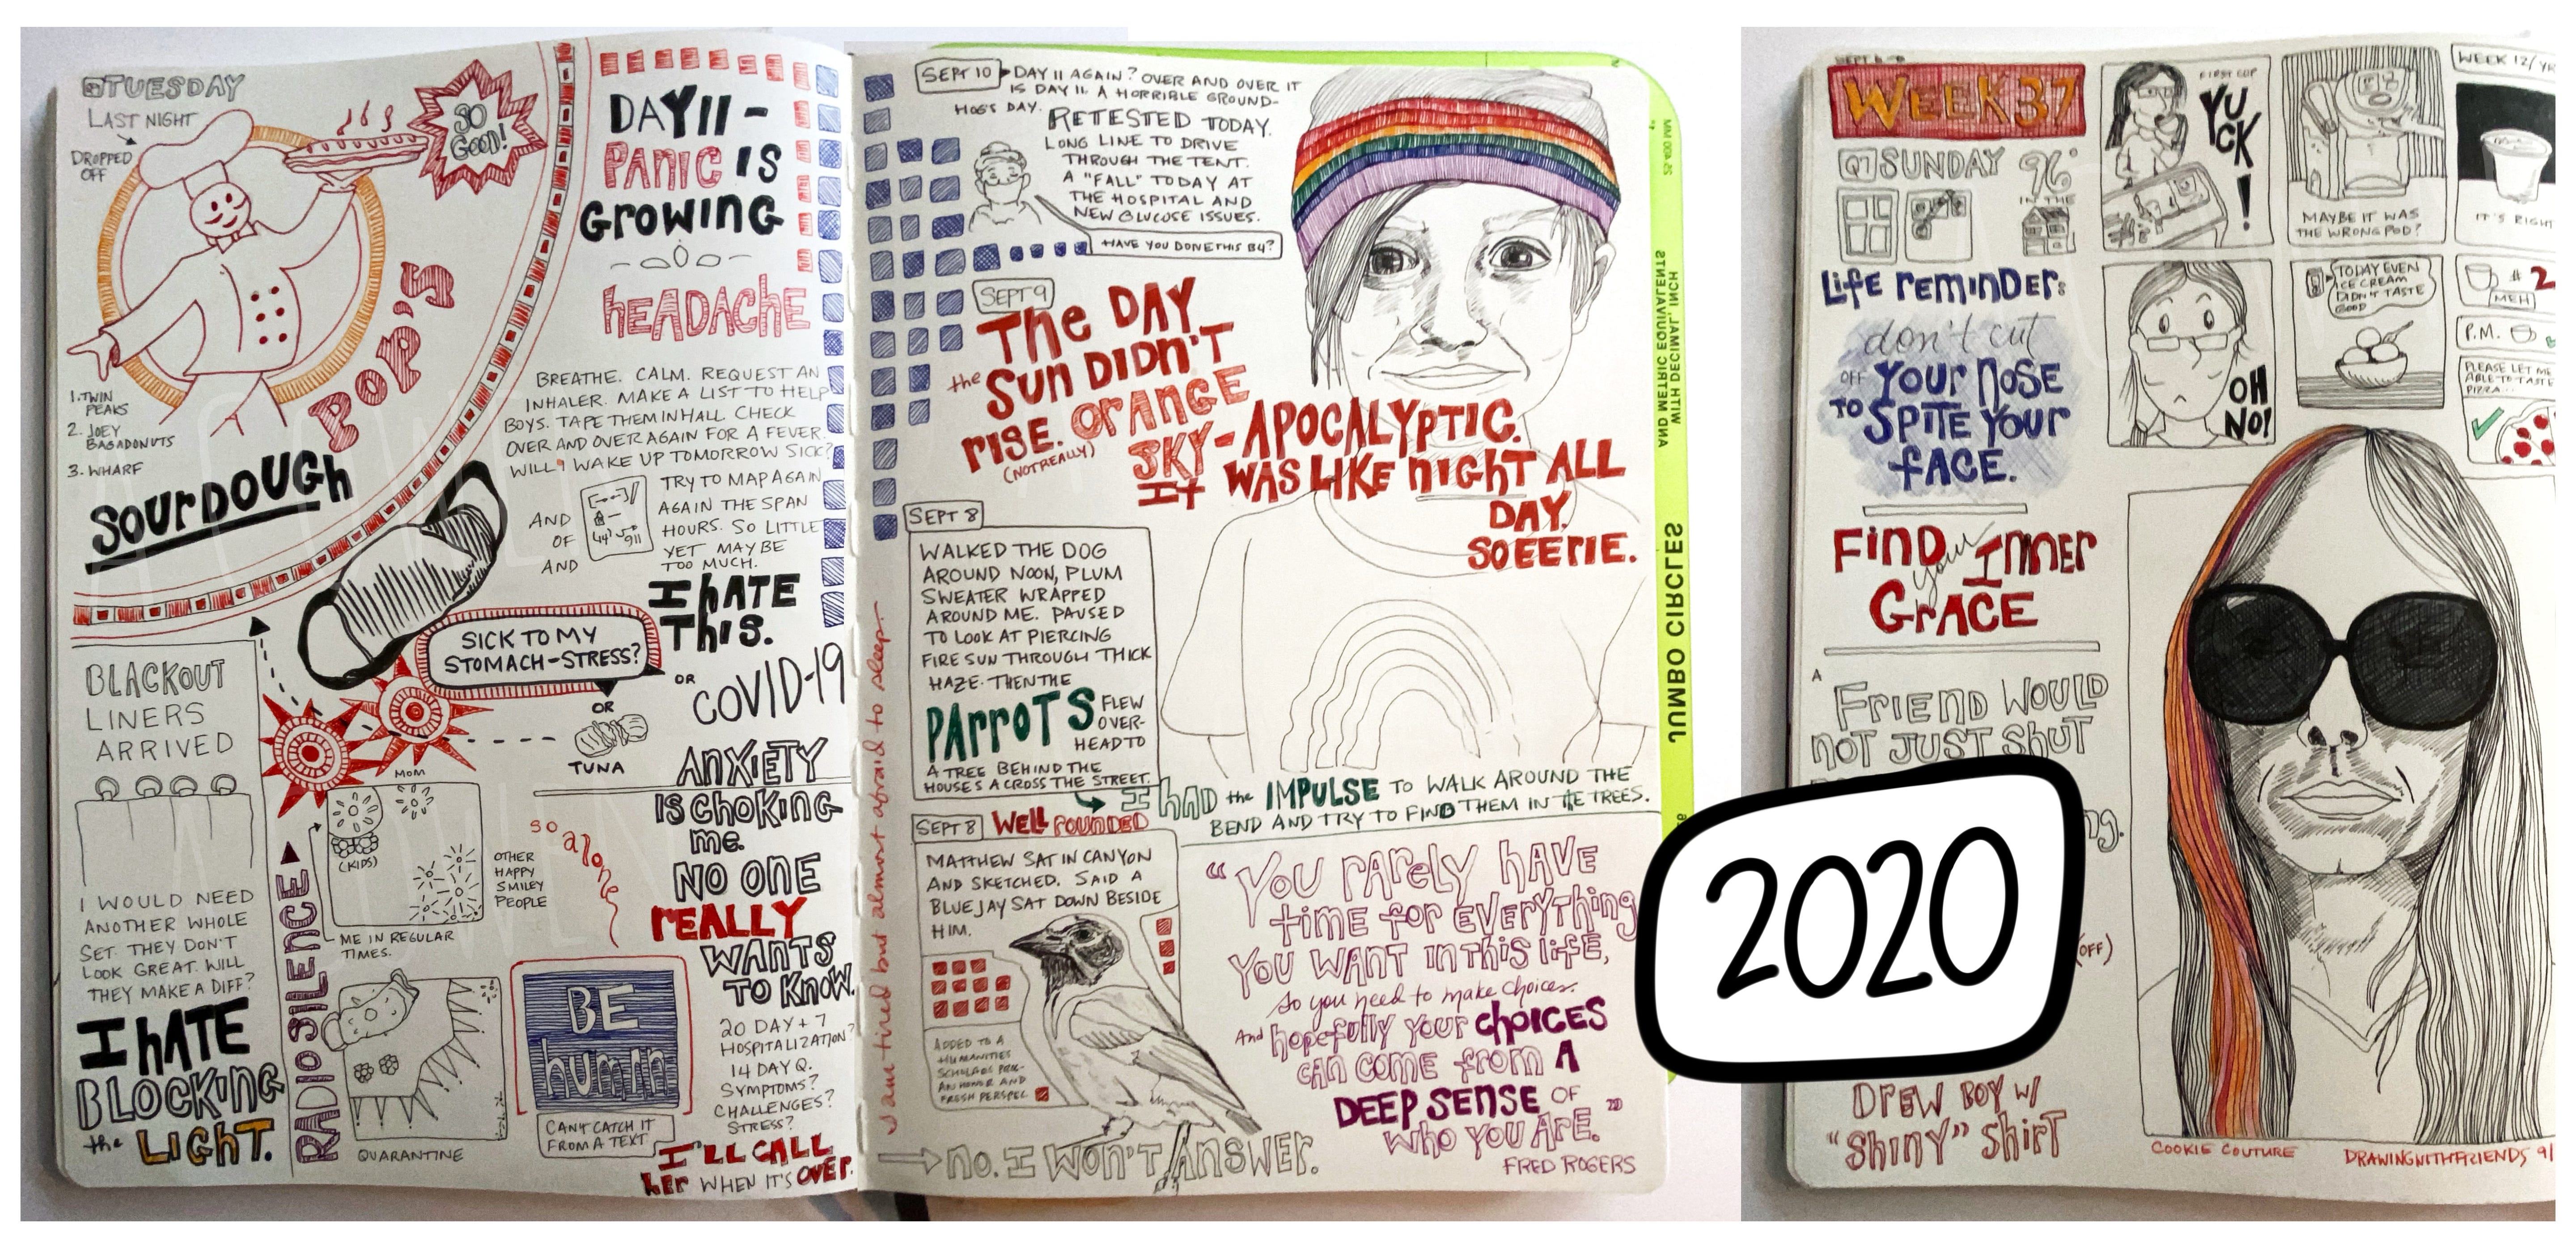 TUESDAY
LAST NIGHT
DROPPED
OFF
SO
GOOD!
POP'S
1. TWIN
PEAKS
2. JOEY
BAGADONUTS
3. WHARF
SOURDOUGH
DAY 11 -
PANIC IS
GROWING
HEADACHE
BREATHE. CALM. REQUEST AN
INHALER. MAKE A LIST TO HELP
BOYS. TAPE THEM IN HALL CHECK
OVER AND OVER AGAIN FOR A FEVER.
WILL I WAKE UP TOMORROW SICK?
TRY TO MAP AGAIN
AND AGAIN THE SPAN
OF HOURS. SO LITTLE
AND YET MAY BE
TOO MUCH.
911
I HATE
THIS.
SICK TO MY
STOMACH-STRESS?
OR
COVID-19
OR
TUNA
BLACKOUT
LINERS
ARRIVED
I WOULD NEED
ANOTHER WHOLE
SET. THEY DON'T
LOOK GREAT. WILL
THEY MAKE A DIFF?
I HATE
BLOCKING
the LIGHT.
RADIO SILENCE
MOM
(KIDS)
OTHER
HAPPY
SMILEY
PEOPLE
ME IN REGULAR
TIMES.
QUARANTINE
so alone
ANXIETY
IS CHOKING
me.
NO ONE
REALLY
WANTS
TO KNOW.
BE
human
CAN'T CATCH IT
FROM A TEXT
20 DAY + 7
HOSPITALIZATION?
14 DAY Q.
SYMPTOMS?
CHALLENGES?
STRESS?
I'LL CALL
HER WHEN IT'S OVER.
I am tired but almost afraid to sleep.
SEPT 10
DAY 11 AGAIN? OVER AND OVER IT
IS DAY 11. A HORRIBLE GROUND-
HOGS DAY.
RETESTED TODAY.
LONG LINE TO DRIVE
THROUGH THE TENT.
A "FALL" TODAY AT
THE HOSPITAL AND
NEW GLUCOSE ISSUES.
HAVE YOU DONE THIS B4?
SEPT 9
THE DAY
the SUN DIDN'T
RISE. ORANGE
(NOT REALLY)
SKY - APOCALYPTIC.
IT WAS LIKE NIGHT ALL
DAY.
SO EERIE.
SEPT 8
WALKED THE DOG
AROUND NOON, PLUM
SWEATER WRAPPED
AROUND ME. PAUSED
TO LOOK AT PIERCING
FIRE SUN THROUGH THICK
HAZE. THEN THE
PARROTS FLEW
OVER-
HEAD TO
A TREE BEHIND THE
HOUSES ACROSS THE STREET.
I HAD the IMPULSE TO WALK AROUND THE
BEND AND TRY TO FIND THEM IN THE TREES.
SEPT 8 WELL ROUNDED
MATTHEW SAT IN CANYON
AND SKETCHED. SAID A
BLUEJAY SAT DOWN BESIDE
HIM.
ADDED TO A
HUMANITIES
SCHOLARS PROG-
AN HONOR AND
FRESH PERSPEC
"YOU RARELY HAVE
time for EVERYTHING
YOU WANT IN THIS LIFE,
so you need to make choices.
And hopefully your CHOICES
CAN COME FROM A
DEEP SENSE OF
WHO YOU ARE."
FRED ROGERS
NO. I WON'T ANSWER.
AND METRIC EQUIVALENTS
WITH DECIMAL, INCH
JUMBO CIRCLES
2020
WEEK 37
SUNDAY 96°
IN THE
Life reminder:
don't cut
OFF YOUR NOSE
TO SPITE YOUR
FACE.
FIND your INNER
GRACE
A
FRIEND WOULD
NOT JUST SHUT
ng.
(OFF)
DREW BOY W/
"SHINY" SHIRT
FIRST CUP
YUCK!
MAYBE IT WAS
THE WRONG POD?
WEEK 12/
IT'S RIGHT
OH
NO!
TODAY EVEN
ICE CREAM
DIDN'T TASTE
GOOD
# 2
MEH
P.M.
PLEASE LET ME
ABLE TO TASTE
PIZZA...
COOKIE COUTURE
DRAWINGWITHFRIENDS 9/